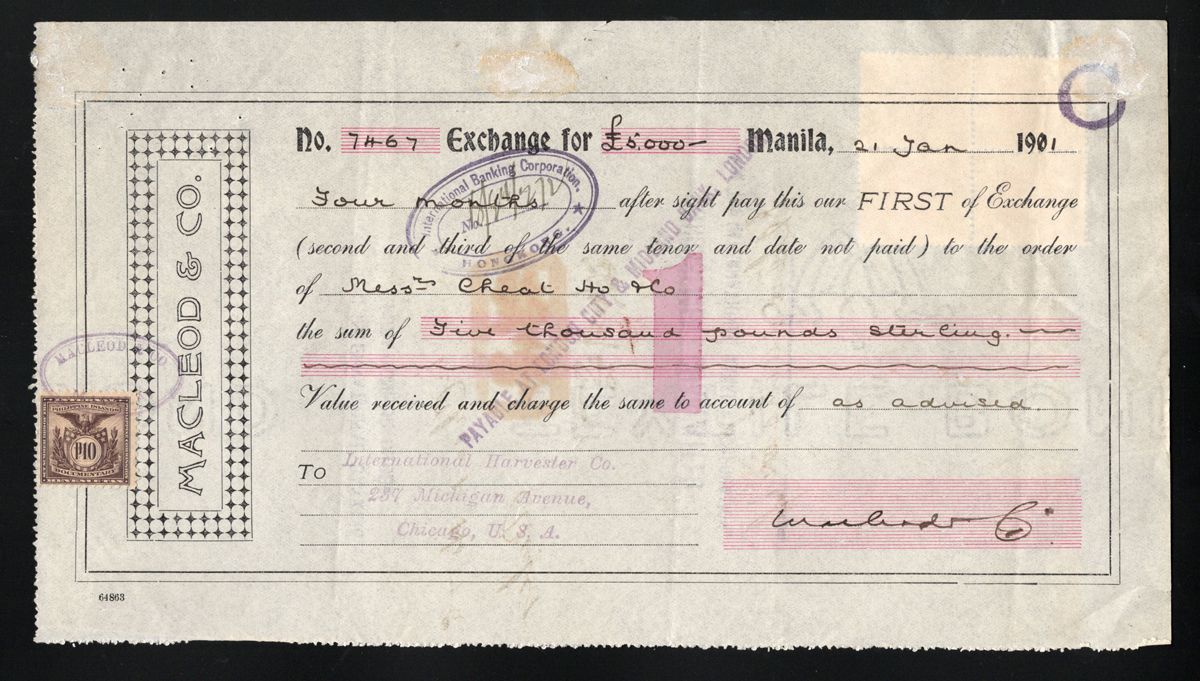 No. 7467 Exchange for £5,000— Manila, 21 Jan 1901
International Banking Corporation.
No.
HONGKONG.
Four months after sight pay this our FIRST of Exchange
(second and third of the same tenor and date not paid) to the order
of Messrs Cheat Ho & Co
the sum of Five thousand pounds sterling.
Value received and charge the same to account of as advised.
PAYABLE LONDON CITY & MIDLAND BANK LOND
1
C
To International Harvester Co.
237 Michigan Avenue,
Chicago, U. S. A.
Macleod & Co.
MACLEOD & CO.
MACLEOD & CO
PHILIPPINE ISLANDS
₱10
DOCUMENTARY
64863